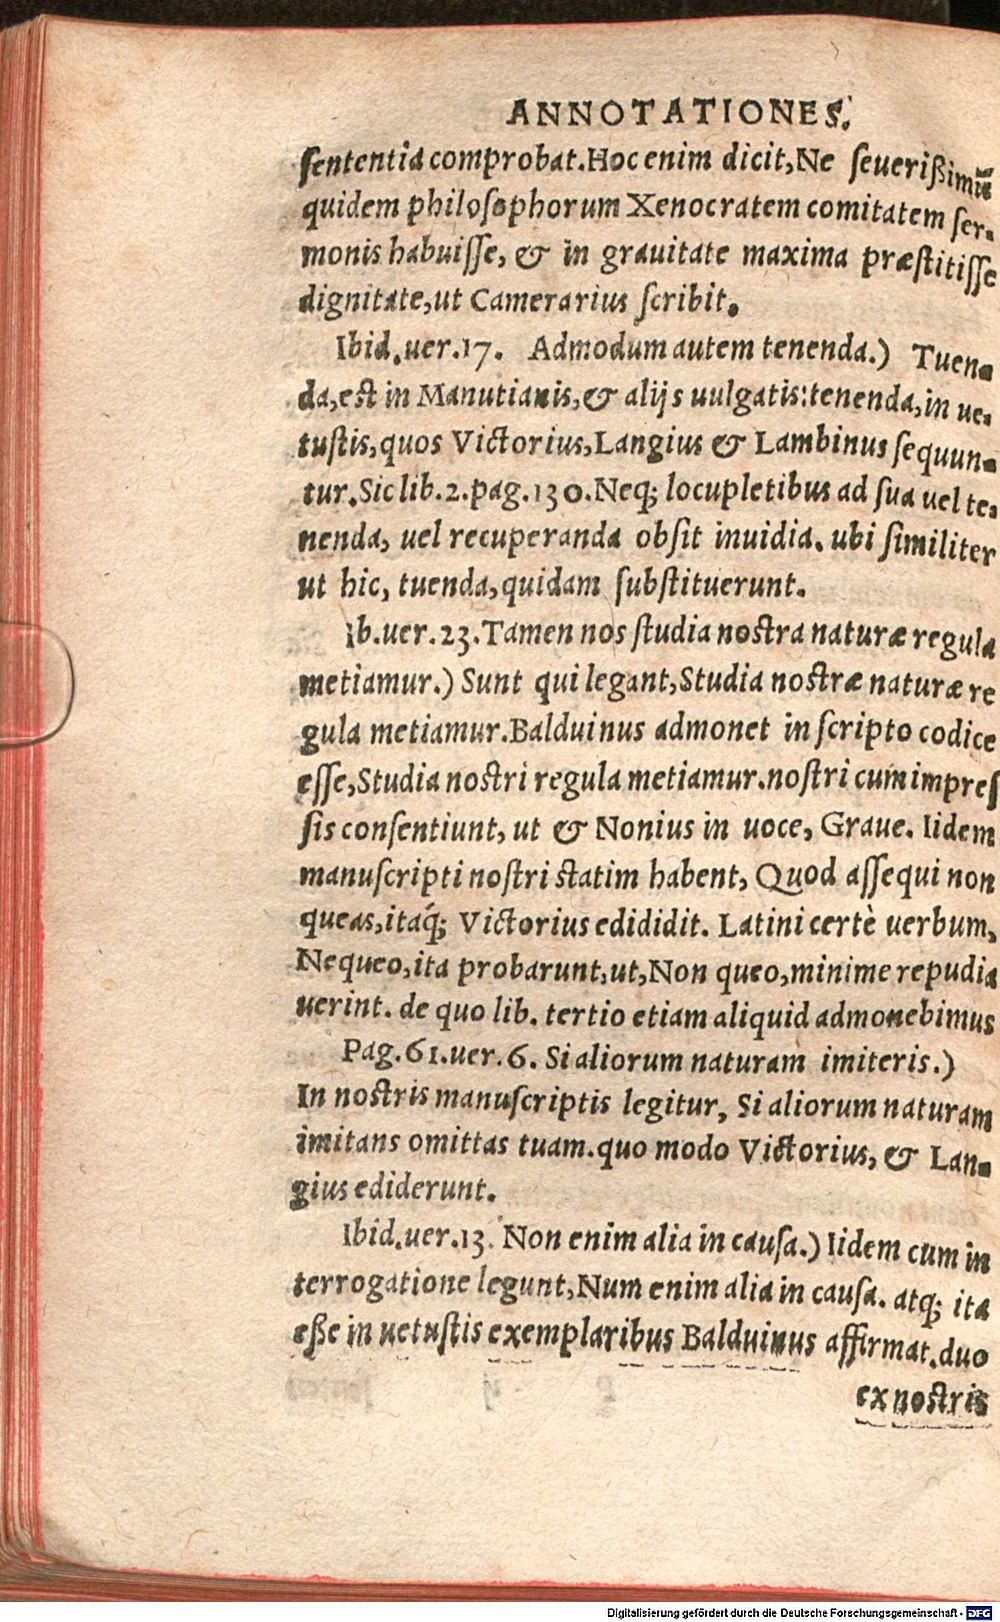 ANNOTATIONES.
ſententia comprobat. Hoc enim dicit, Ne ſeuerißimũ
quidem philoſophorum Xenocratem comitatem ſer-
monis habuiſſe, & in grauitate maxima præſtitiſſe
dignitate, ut Camerarius ſcribit.
Ibid. uer. 17. Admodum autem tenenda.) Tuen-
da, est in Manutianis, & alijs uulgatis: tenenda, in ue-
tuſtis, quos Victorius, Langius & Lambinus ſequun-
tur. Sic lib. 2. pag. 130. Neq; locupletibus ad ſua uel te-
nenda, uel recuperanda obſit inuidia. ubi ſimiliter
ut hic, tuenda, quidam ſubſtituerunt.
Ib. uer. 23. Tamen nos ſtudia noſtra naturæ regula
metiamur.) Sunt qui legant, Studia noſtræ naturæ re
gula metiamur. Balduinus admonet in ſcripto codice
eſſe, Studia noſtri regula metiamur. noſtri cum impreſ
ſis conſentiunt, ut & Nonius in uoce, Graue. Iidem
manuſcripti noſtri ſtatim habent, Quod aſſequi non
queas, itaq́; Victorius edididit. Latini certè uerbum,
Nequeo, ita probarunt, ut, Non queo, minime repudia
uerint. de quo lib. tertio etiam aliquid admonebimus
Pag. 61. uer. 6. Si aliorum naturam imiteris.)
In noſtris manuſcriptis legitur, Si aliorum naturam
imitans omittas tuam. quo modo Victorius, & Lan-
gius ediderunt.
Ibid. uer. 13. Non enim alia in cauſa.) Iidem cum in
terrogatione legunt, Num enim alia in cauſa. atq; ita
eße in uetuſtis exemplaribus Balduinus affirmat. duo
ex noſtris
Digitalisierung gefördert durch die Deutsche Forschungsgemeinschaft - DFG